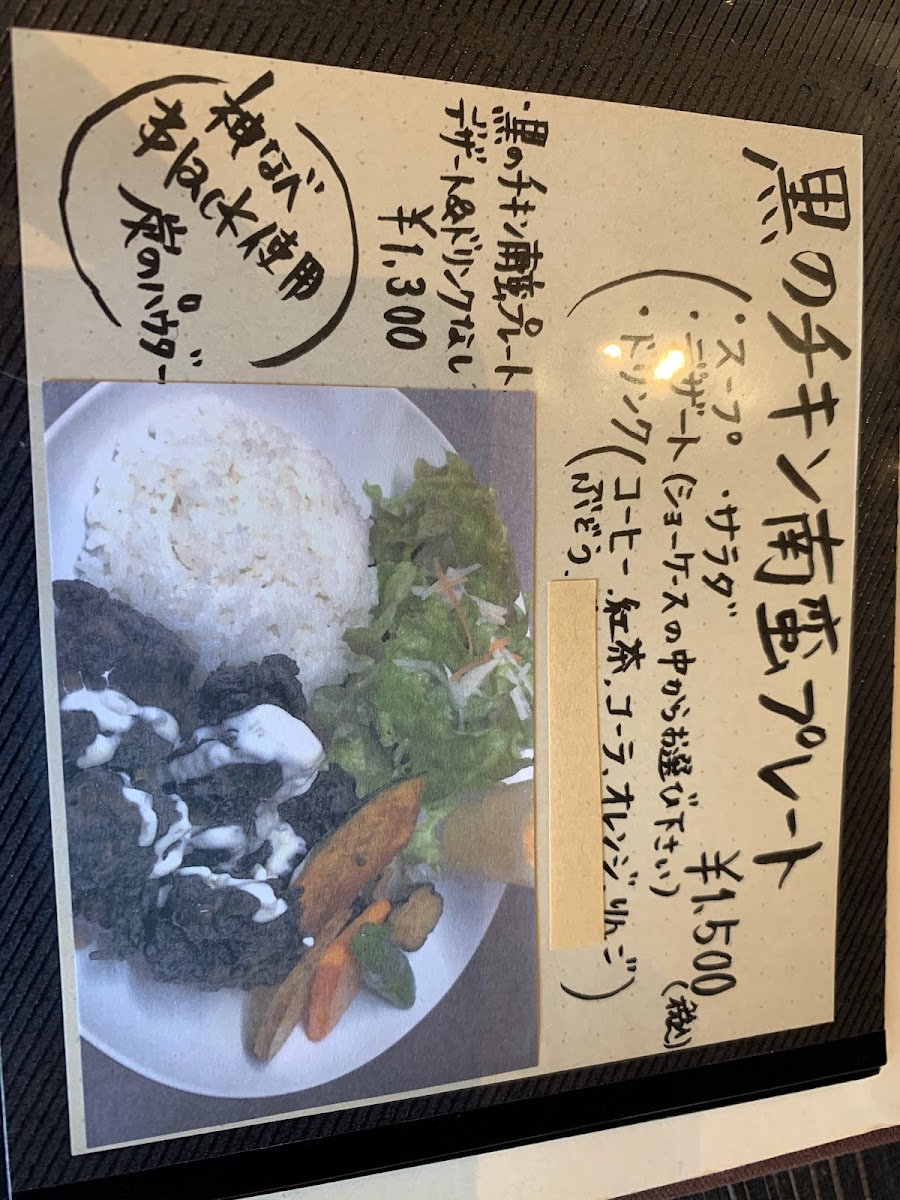 黒のチキン南蛮プレート
¥1,500(税込)
・スープ ・サラダ
・デザート(ショーケースの中からお選び下さい)
・ドリンク(コーヒー、紅茶、コーラ、オレンジ、りんご
ぶどう)
・黒のチキン南蛮プレート
デザート&ドリンクなし
¥1,300
神なべ
使用
炭のパウダー